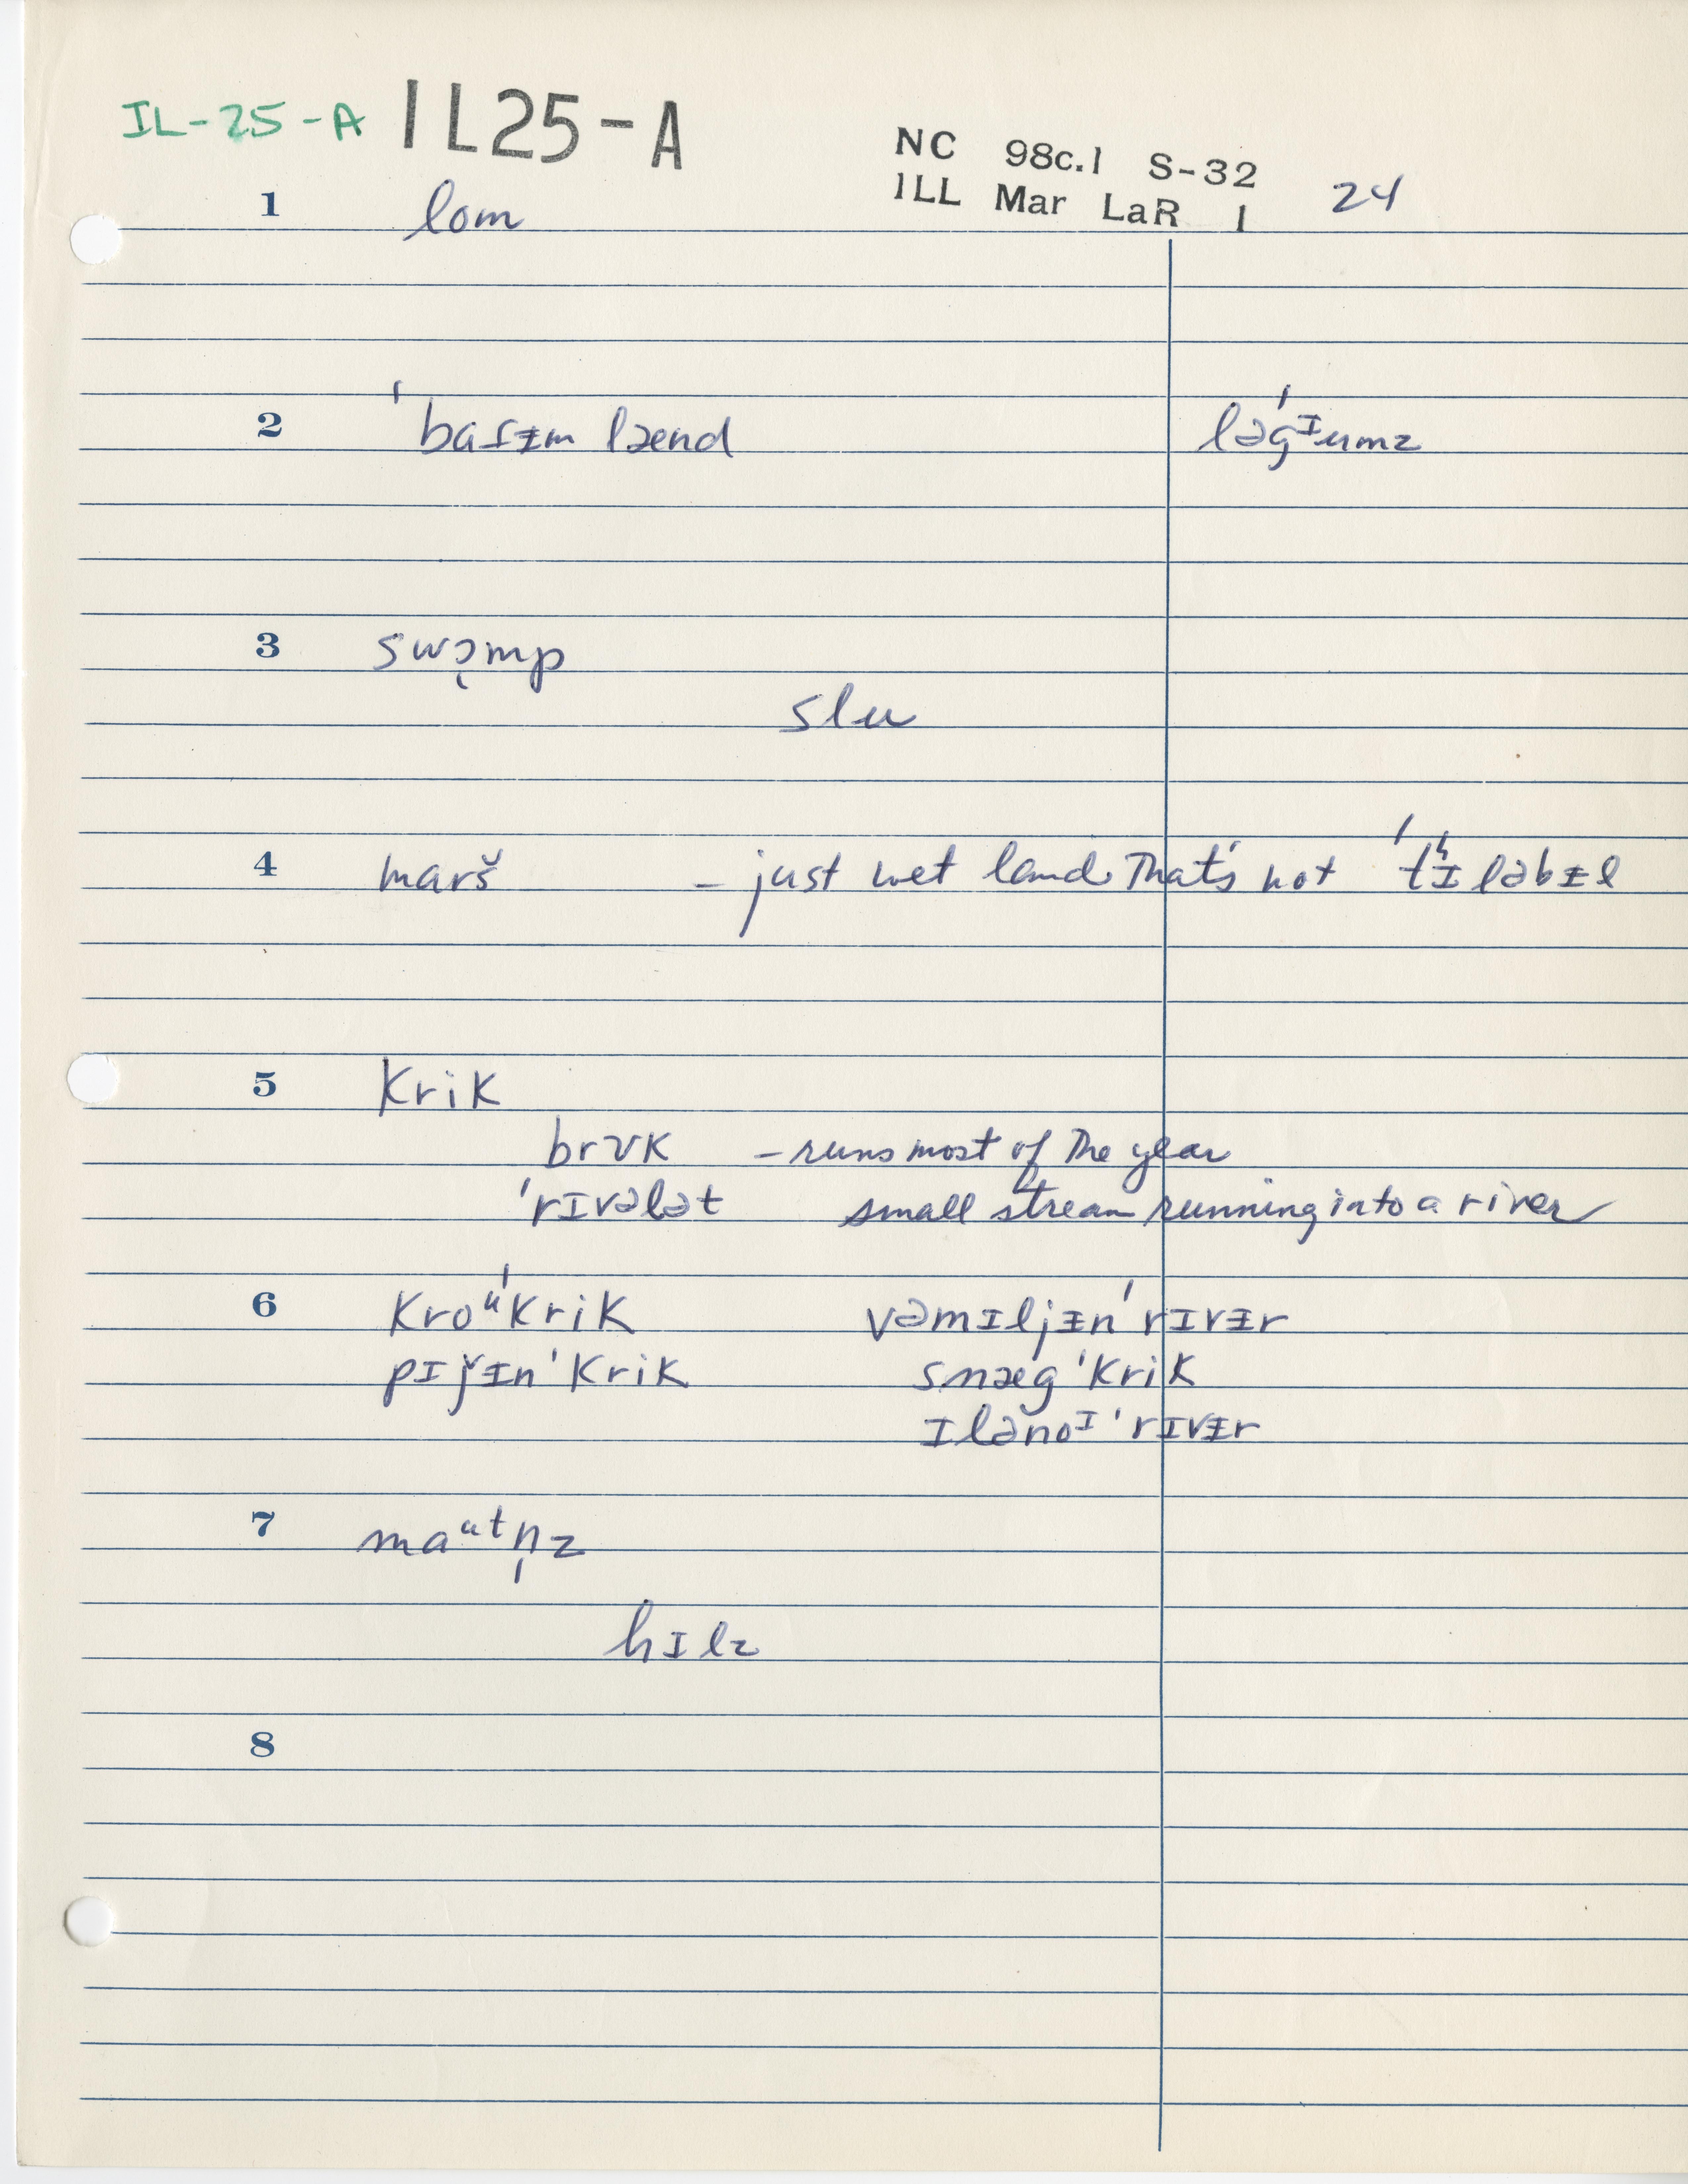 IL-25-A IL25-A
NC 98c.1 S-32
ILL Mar LaR 1 24
1 lom
2 ˈbaſᵻm lænd ləˈgᶦumz
3 swɔ̨mp
slu
4 marš – just wet land. That's not ˈtʰɪləbᵻl
5 krik
brʊk – runs most of the year
ˈrɪvələt small stream running into a river
6 kroᵘˈkrik vəmɪljᵻnˈrɪvᵻr
pɪǰᵻnˈkrik snægˈkrik
ɪlənoᶦˈrɪvᵻr
7 maᵘᵗn̩z
hɪlz
8